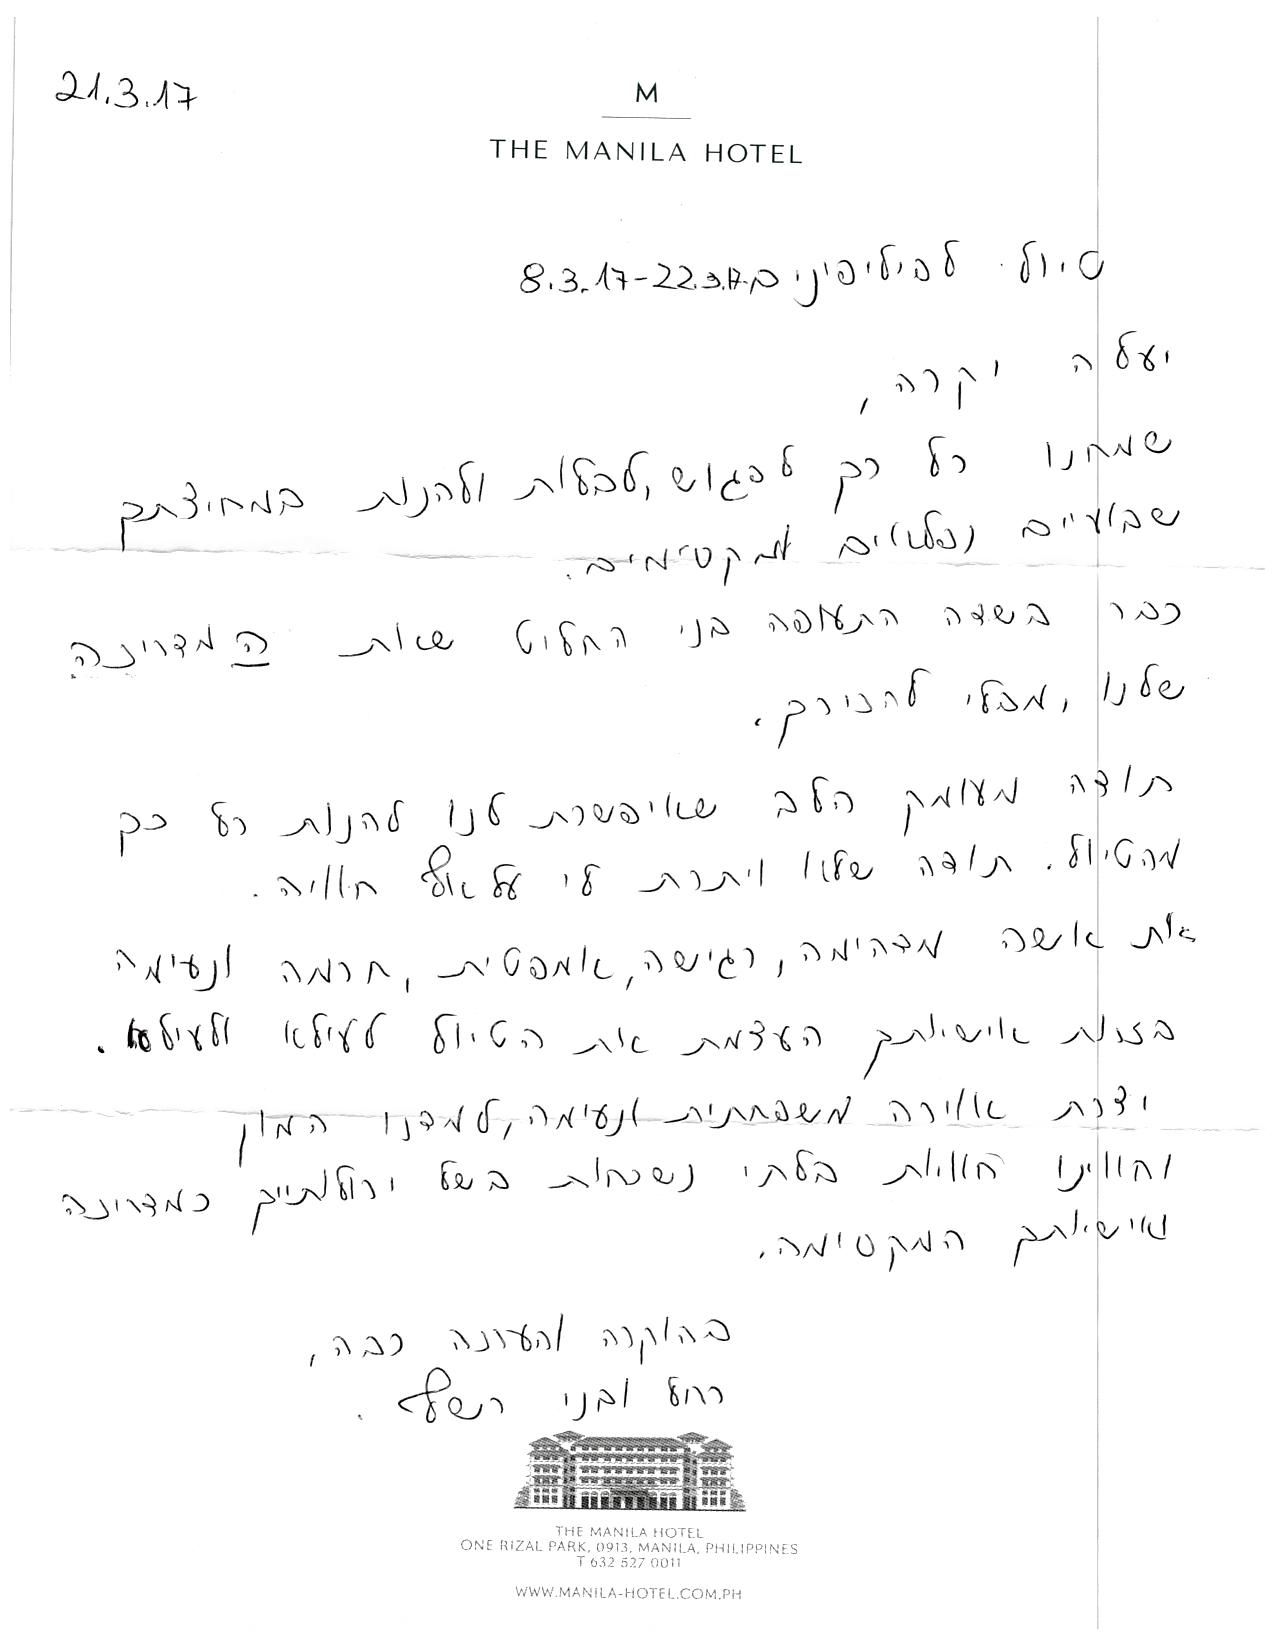 21.3.17
M
THE MANILA HOTEL
טיול לפיליפינים 8.3.17-22.3.17
יעלה יקרה,
שמחנו כל כך לפגוש, לבלות ולהנות במחיצתך
שבועיים נפלאים ומקסימים.
כבר בשדה התעופה בני החליט שאת המדריכה
שלנו, מבלי להכירך.
תודה מעומק הלב שאיפשרת לנו להנות כל כך
מהטיול. תודה שלא ויתרת לי על אף חוויה.
את אשה מדהימה, רגישה, אמפטית, חכמה ונעימה
בזכות אישיותך העצמת את הטיול לעילא ולעילא.
יצרת אוירה משפחתית ונעימה, למדנו המון
וחווינו חוויות בלתי נשכחות בשל יכולותייך כמדריכה
ואישיותך המקסימה.
בהוקרה והערכה רבה,
רחל ובני רשף.
THE MANILA HOTEL
ONE RIZAL PARK, 0913, MANILA, PHILIPPINES
T 632 527 0011
WWW.MANILA-HOTEL.COM.PH